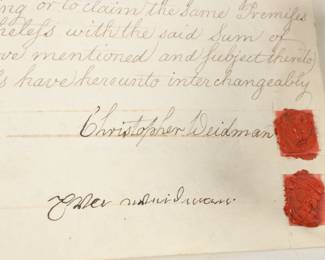 ing or to claim the Same Premises
theless with the said Sum of
ove mentioned and Subject thereto
s have hereunto interchangeably
Christopher Weidman
Weidman